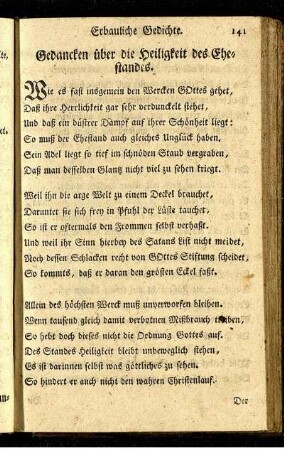 Erbauliche Gedichte. 141
Gedancken über die Heiligkeit des Ehe-
standes.
Wie es fast insgemein den Wercken GOttes gehet,
Daß ihre Herrlichkeit gar sehr verdunckelt stehet,
Und daß ein düstrer Dampf auf ihrer Schönheit liegt:
So muß der Ehestand auch gleiches Unglück haben,
Sein Adel liegt so tief im schnöden Staub vergraben,
Daß man desselben Glantz nicht viel zu sehen kriegt.
Weil ihn die arge Welt zu einem Deckel brauchet,
Darunter sie sich frey in Pfuhl der Lüste tauchet,
So ist er oftermals den Frommen selbst verhaßt.
Und weil ihr Sinn hierbey des Satans List nicht meidet,
Noch dessen Schlacken recht von GOttes Stiftung scheidet,
So kommts, daß er daran den grösten Eckel faßt.
Allein des höchsten Werck muß unverworfen bleiben.
Wenn tausend gleich damit verbotnen Mißbrauch treiben,
So hebt doch dieses nicht die Ordnung Gottes auf.
Des Standes Heiligkeit bleibt unbeweglich stehen,
Es ist darinnen selbst was göttliches zu sehen.
So hindert er auch nicht den wahren Christenlauf.
Der